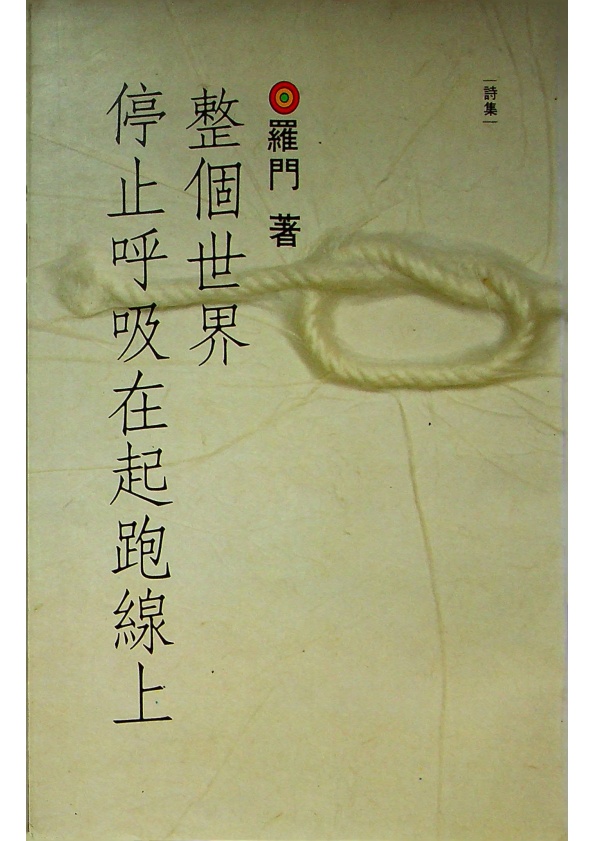 詩集
羅門 著
整個世界
停止呼吸在起跑線上